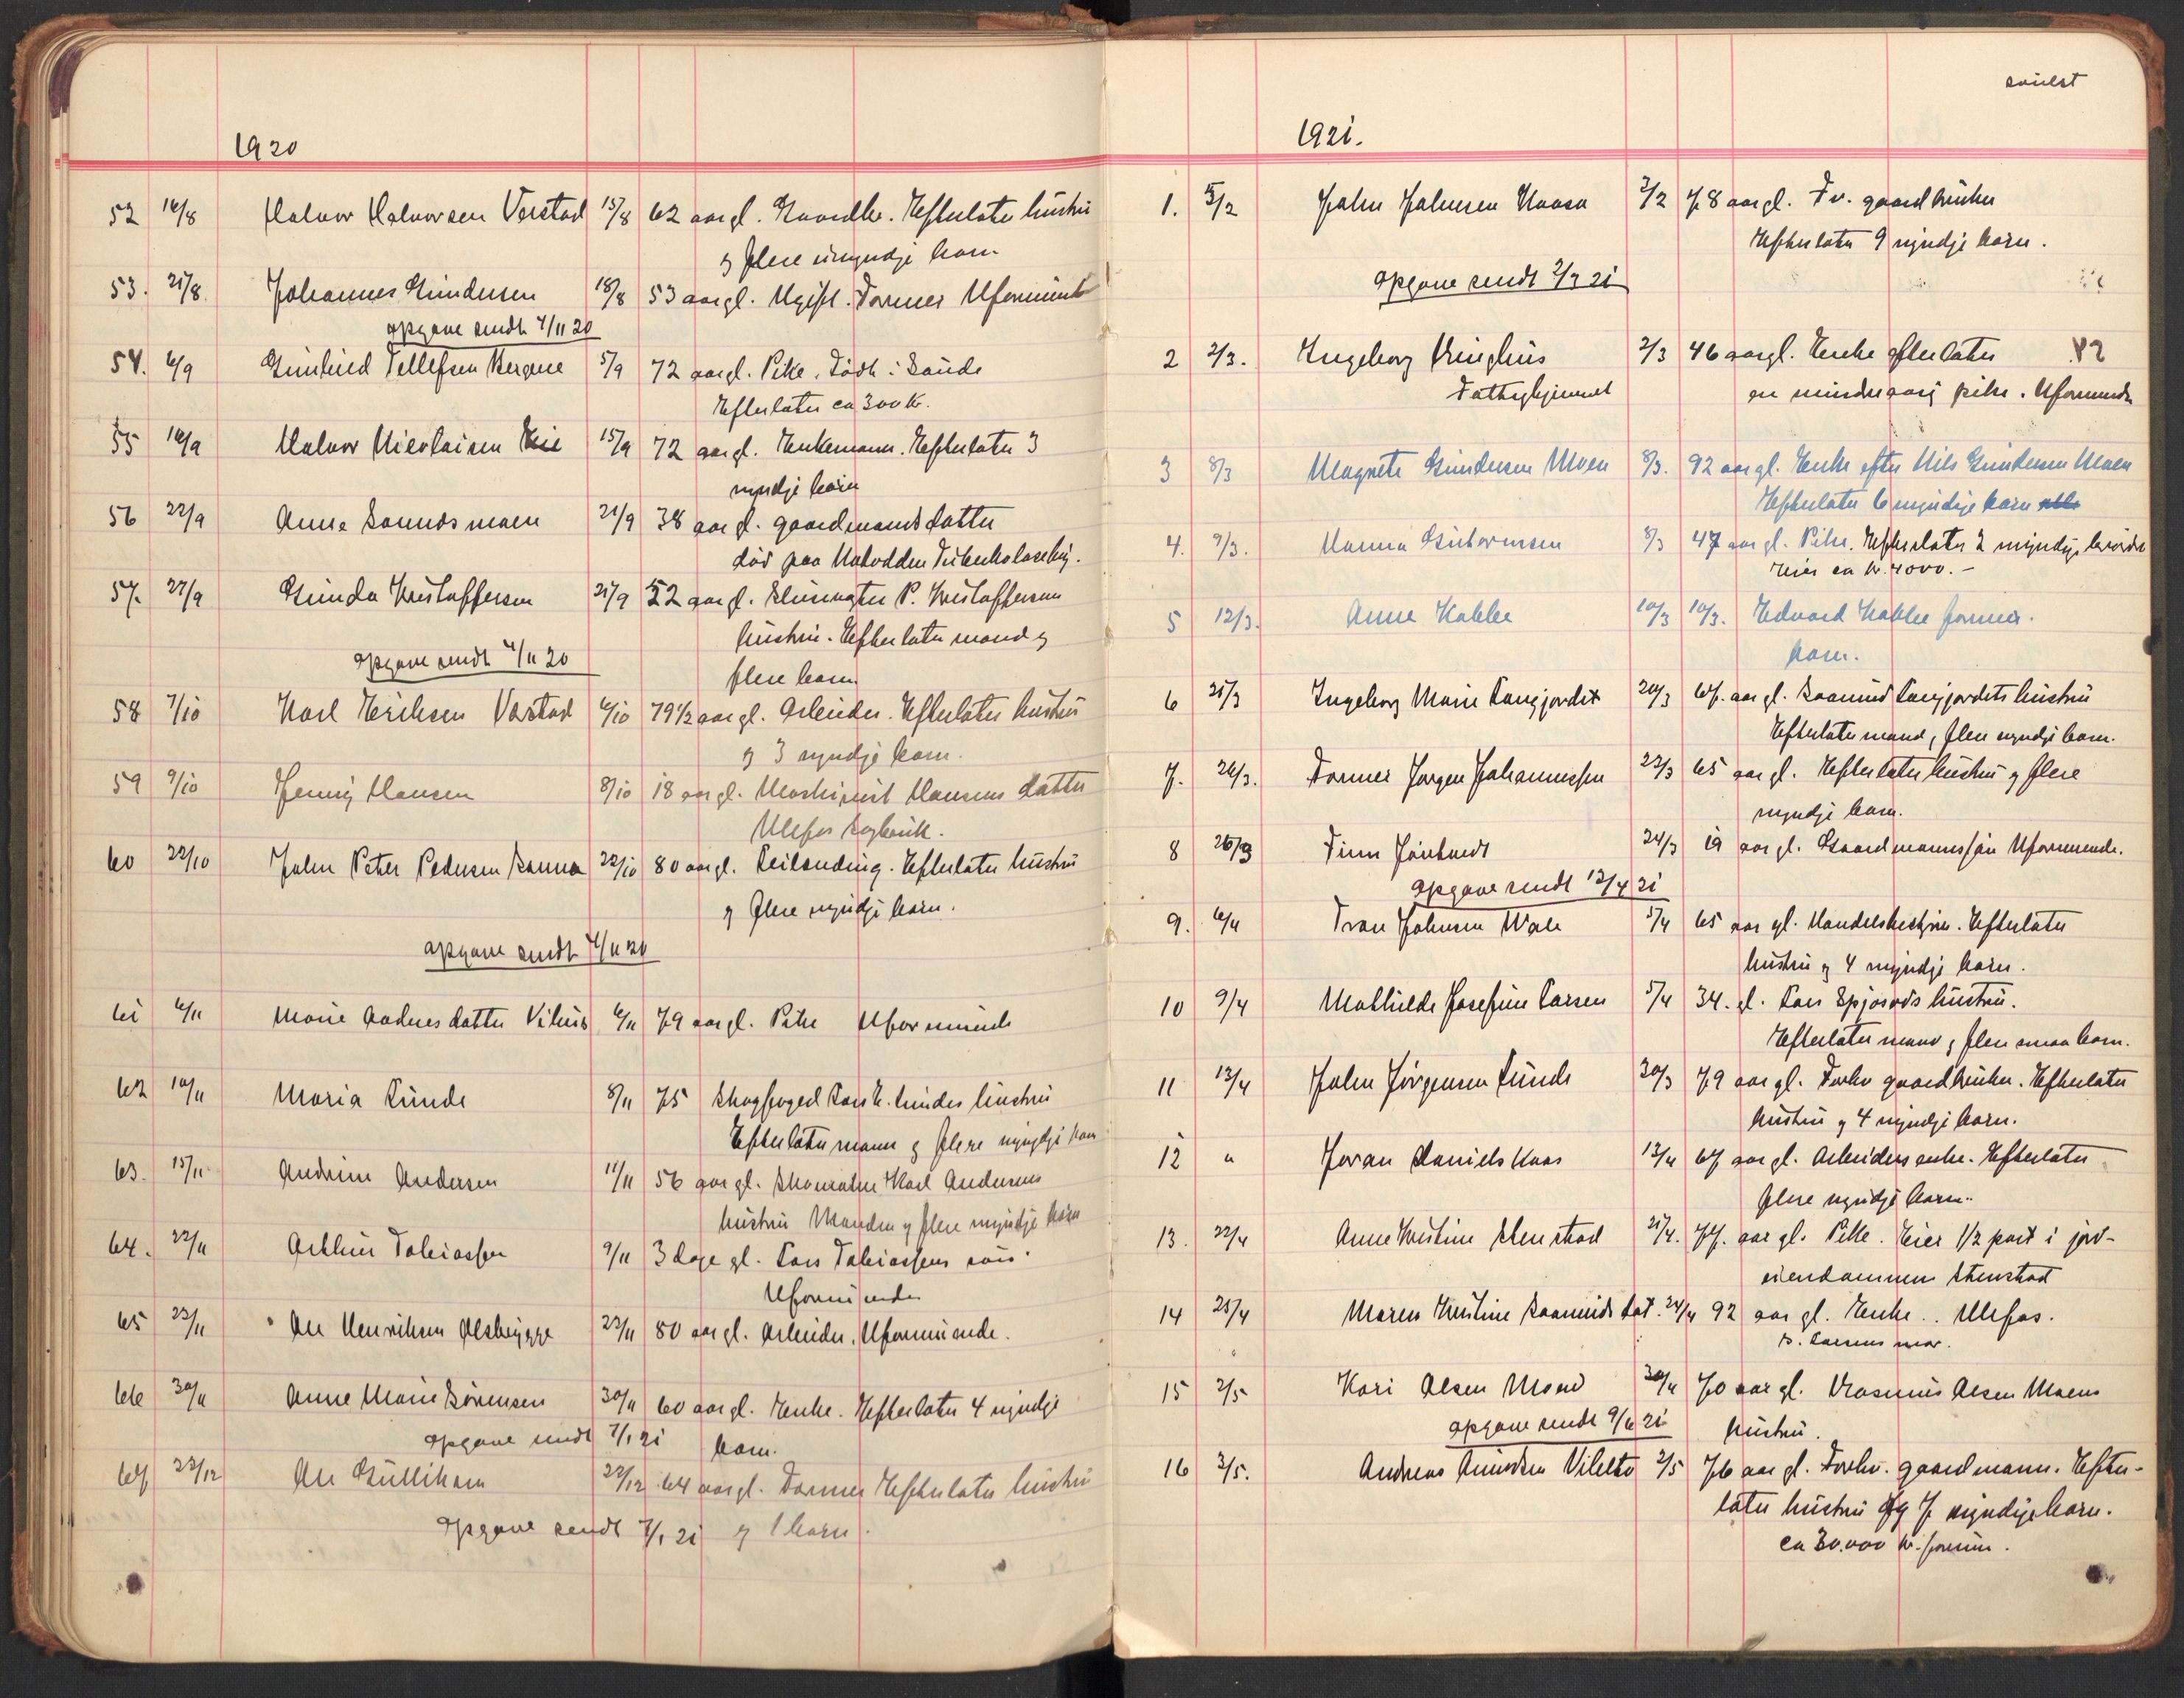 1920
52 16/8 Halvor Halvorsen Verstad 15/8 62 aar gl. Gaardbr. Efterlater hustru
og flere umyndje barn
53. 21/8 Johannes Gundersen 18/8 53 aar gl. Ugift. Former Uformuende
opgave sendt 4/11 20
54. 6/9 Gunhild Tellefsen Bergene 5/9 72 aar gl. Pike. Födt i Saude
Efterlater ca 300 kr.
55 16/9 Halvor Nicolaisen 15/9 72 aar gl. Enkemann. Efterlater 3
myndje barn
56 22/9 Anne Saundsmoen 21/9 38 aar gl. gaardmandsdatter
död paa Notodden Tuberkulosehj.
57. 27/9 Gunda Kristoffersen 21/9 52 aar gl. P. Kristoffersen
hustru. Efterlater mand og
opgave sendt 4/11 20
flere barn
58 7/10 Karl Eriksen Verstad 6/10 79 1/2 aar gl. Arbeider. Efterlater hustru
og 3 myndje barn.
59 9/10 Jenny Hansen 8/10 18 aar gl. Maskinist Hansens datter
Ulefos Sagbruk.
60 22/10 John Peter Pedersen Sanna 22/10 80 aar gl. Leilending. Efterlater hustru
og flere myndje barn.
opgave sendt 4/11 20
61 6/11 Marie Andersdatter Vibeto 6/11 79 aar gl. Pike Uformuende
62 10/11 Maria Lunde 8/11 75 Skogfoged Lars H. Lundes hustru
Efterlater mann og flere myndje barn
63. 15/11 Andrine Andersen 11/11 56 aar gl. Skomaker Karl Andersens
hustru Manden og flere myndje barn
64. 22/11 Arthur Tobiassen 9/11 3 dage gl. Lars Tobiassens sön.
Uformuende
65 23/11 Ole Henriksen Ölsbrygge 22/11 80 aar gl. Arbeider, Uformuende.
66 30/11 Anne Marie Sörensen 30/11 60 aar gl. Enke. Efterlater 4 myndje
opgave sendt 7/1 21 barn.
67 23/12 Ole Gulliksen 22/12 64 aar gl. Former Efterlater hustru
opgave sendt 7/1 21 og 1 barn.
1921.
1. 5/2 John Johnsen Kaasa 2/2 78 aar gl. Fv. gaardbruker
Efterlater 9 myndje barn.
opgave sendt 2/3 21
2 2/3. Ingeborg Ringhus 2/3 46 aar gl. Enke efterlater 42
Fattighjemmet en mindreaarig pike. Uformuende
3 8/3 Magnete Gundersen Moen 8/3. 92 aar gl. Enke efter Nils Gundersen Moen
Efterlater 6 myndige barn
4. 9/3. Hanna Guttormsen 8/3 47 aar gl. Pike. Efterlater 2 myndige brödre
Eier ca kr. 4000.-
5 12/3. Anne Kabbe 10/3 10/3. Edvard Kabbe former.
barn.
6 21/3 Ingeborg Marie Langjordet 20/3 67. aar gl. Saamund Langjordets hustru
Efterlater mand, flere myndje barn.
7. 26/3. Former Jörgen Johannessen 22/3 65 aar gl. Efterlater hustru og flere
myndje barn.
8 26/3 Finn 24/3 19 aar gl. Gaardmannssön Uformuende.
opgave sendt 12/4 21
9. 6/4 Johnsen Wala 5/4 65 aar gl. Handelsbestyrer. Efterlater
hustru og 4 myndje barn.
10 9/4 Mathilde Josefine Larsen 5/4 34. gl. Lars hustru.
Efterlater mand, flere smaa barn.
11 12/4 John Jörgensen Lunde 30/3 79 aar gl. Forhv gaardbruker. Efterlater
hustru og 4 myndje barn.
12 " Joran Daniels Kaas 12/4 67 aar gl. Arbeiders enke. Efterlater
flere myndje barn.
13. 22/4 Anne Kristine Stenstad 21/4. 77. aar gl. Pike. Eier 1/2 part i jord-
eiendommen Stenstad
14 25/4 Maren Kristine Saamunds dat. 24/4 92 aar gl. Enke.. Ulefos.
S. Larsens mor.
15 2/5 Kari Olsen Moen 30/4 70 aar gl. Rasmus Olsen Moens
opgave sendt 9/6 21 hustru.
16 3/5. Andreas Amundsen Vibeto 2/5 76 aar gl. Forhv. gaardmann. Efter-
later hustru og 7 myndige barn.
ca 30.000 kr. formue.